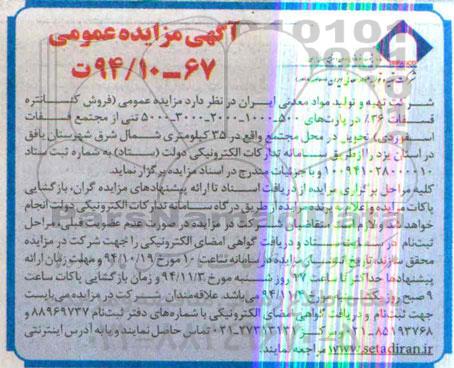 آگهی مزایده عمومی
۶۷-۹۴/۱۰ت
شرکت تهیه و تولید مواد معدنی ایران در نظر دارد مزایده عمومی (فروش کنسانتره
فسفات ۳۶٪ در پارت‌های ۵۰۰-۱۰۰۰-۲۰۰۰-۳۰۰۰-۵۰۰۰ تنی از مجتمع فسفات
اسفوردی) تحویل در محل مجتمع واقع در ۳۵ کیلومتری شمال شرق شهرستان بافق
در استان یزد را از طریق سامانه تدارکات الکترونیکی دولت (ستاد) به شماره ثبت ستاد
و با جزئیات مندرج در اسناد مزایده برگزار نماید.
کلیه مراحل برگزاری مزایده از دریافت اسناد تا ارائه پیشنهادهای مزایده گران، بازگشایی
پاکات مزایده و اعلام به برنده مزایده از طریق درگاه سامانه تدارکات الکترونیکی دولت انجام
خواهد شد و لازم است متقاضیان شرکت در مزایده در صورت عدم عضویت قبلی، مراحل
ثبت‌نام در سایت ستاد و دریافت گواهی امضای الکترونیکی را جهت شرکت در مزایده
محقق سازند. تاریخ ساعت ۱۰ مورخ ۹۴/۱۰/۱۹ و مهلت زمان ارائه
پیشنهادها حداکثر تا ساعت ۱۷ روز شنبه مورخ ۹۴/۱۱/۳ و زمان بازگشایی پاکات ساعت
۹ صبح روز یکشنبه مورخ ۹۴/۱۱/۴ می‌باشد. علاقه‌مندان شرکت در مزایده می‌بایست
جهت ثبت‌نام و دریافت گواهی امضای الکترونیکی با شماره‌های دفتر ثبت‌نام ۸۸۹۶۹۷۳۷ و
۸۵۱۹۳۷۶۸-۰۲۱ و مرکز ۲۷۳۱۳۱۳۱-۰۲۱ تماس حاصل نمایند و یا به آدرس اینترنتی
www.setadiran.ir مراجعه نمایند.